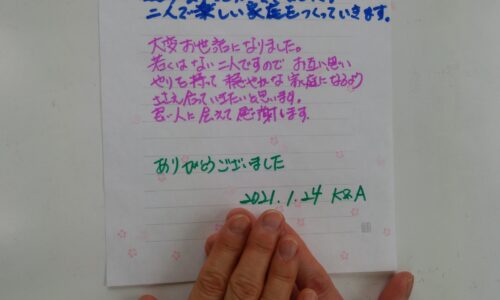 二人で楽しい家庭をつくっていきます。
大変お世話になりました。
若くはない二人ですので お互い思い
やりを持って 穏やかな 家庭になるよう
ささえ合っていきたいと思います。
君一人に 伝えて 感謝します
ありがとうございました
2021.1.24 K&A